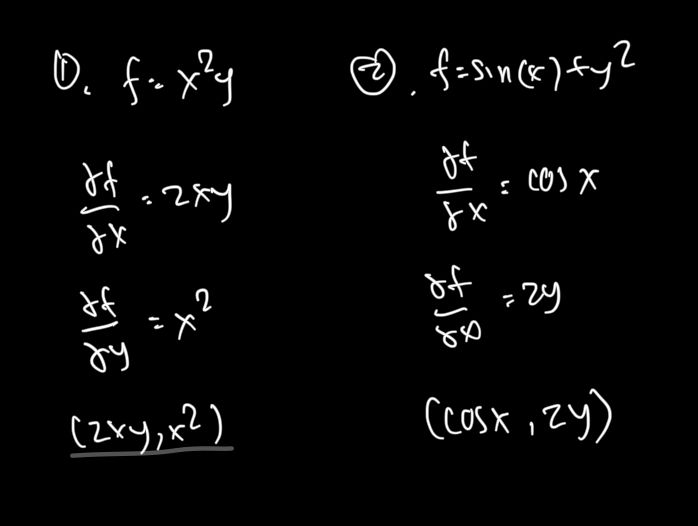 ①. f = x²y
∂f/∂x = 2xy
∂f/∂y = x²
(2xy, x²)
②. f = sin(x) + y²
∂f/∂x = cos x
∂f/∂x = 2y
(cosx, 2y)